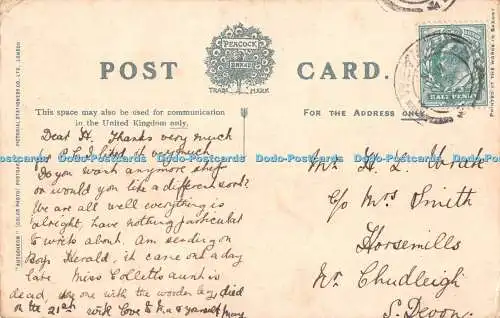 PEACOCK
BRAND
TRADE MARK
POST CARD.
This space may also be used for communication
in the United Kingdom only.
FOR THE ADDRESS ONLY
HALF PENNY
"AUTOCHROM" (COLOUR PHOTO) POSTCARD PICTORIAL STATIONERY CO., LTD., LONDON
Dear H. Thanks very much
for P.C. I liked it very much
Do you want anymore
or would you like a different sort?
We are all well everything is
alright, have nothing particular
to write about. Am sending on
Boys Herald, it came one a day
late. Miss Colletts aunt is
dead, one with the wooden leg, died
on the 21st with love to & yourself
Mr H. L.
c/o Mrs Smith
Horsemills
Nr. Chudleigh
S. Devon.
Data-Postcards.com